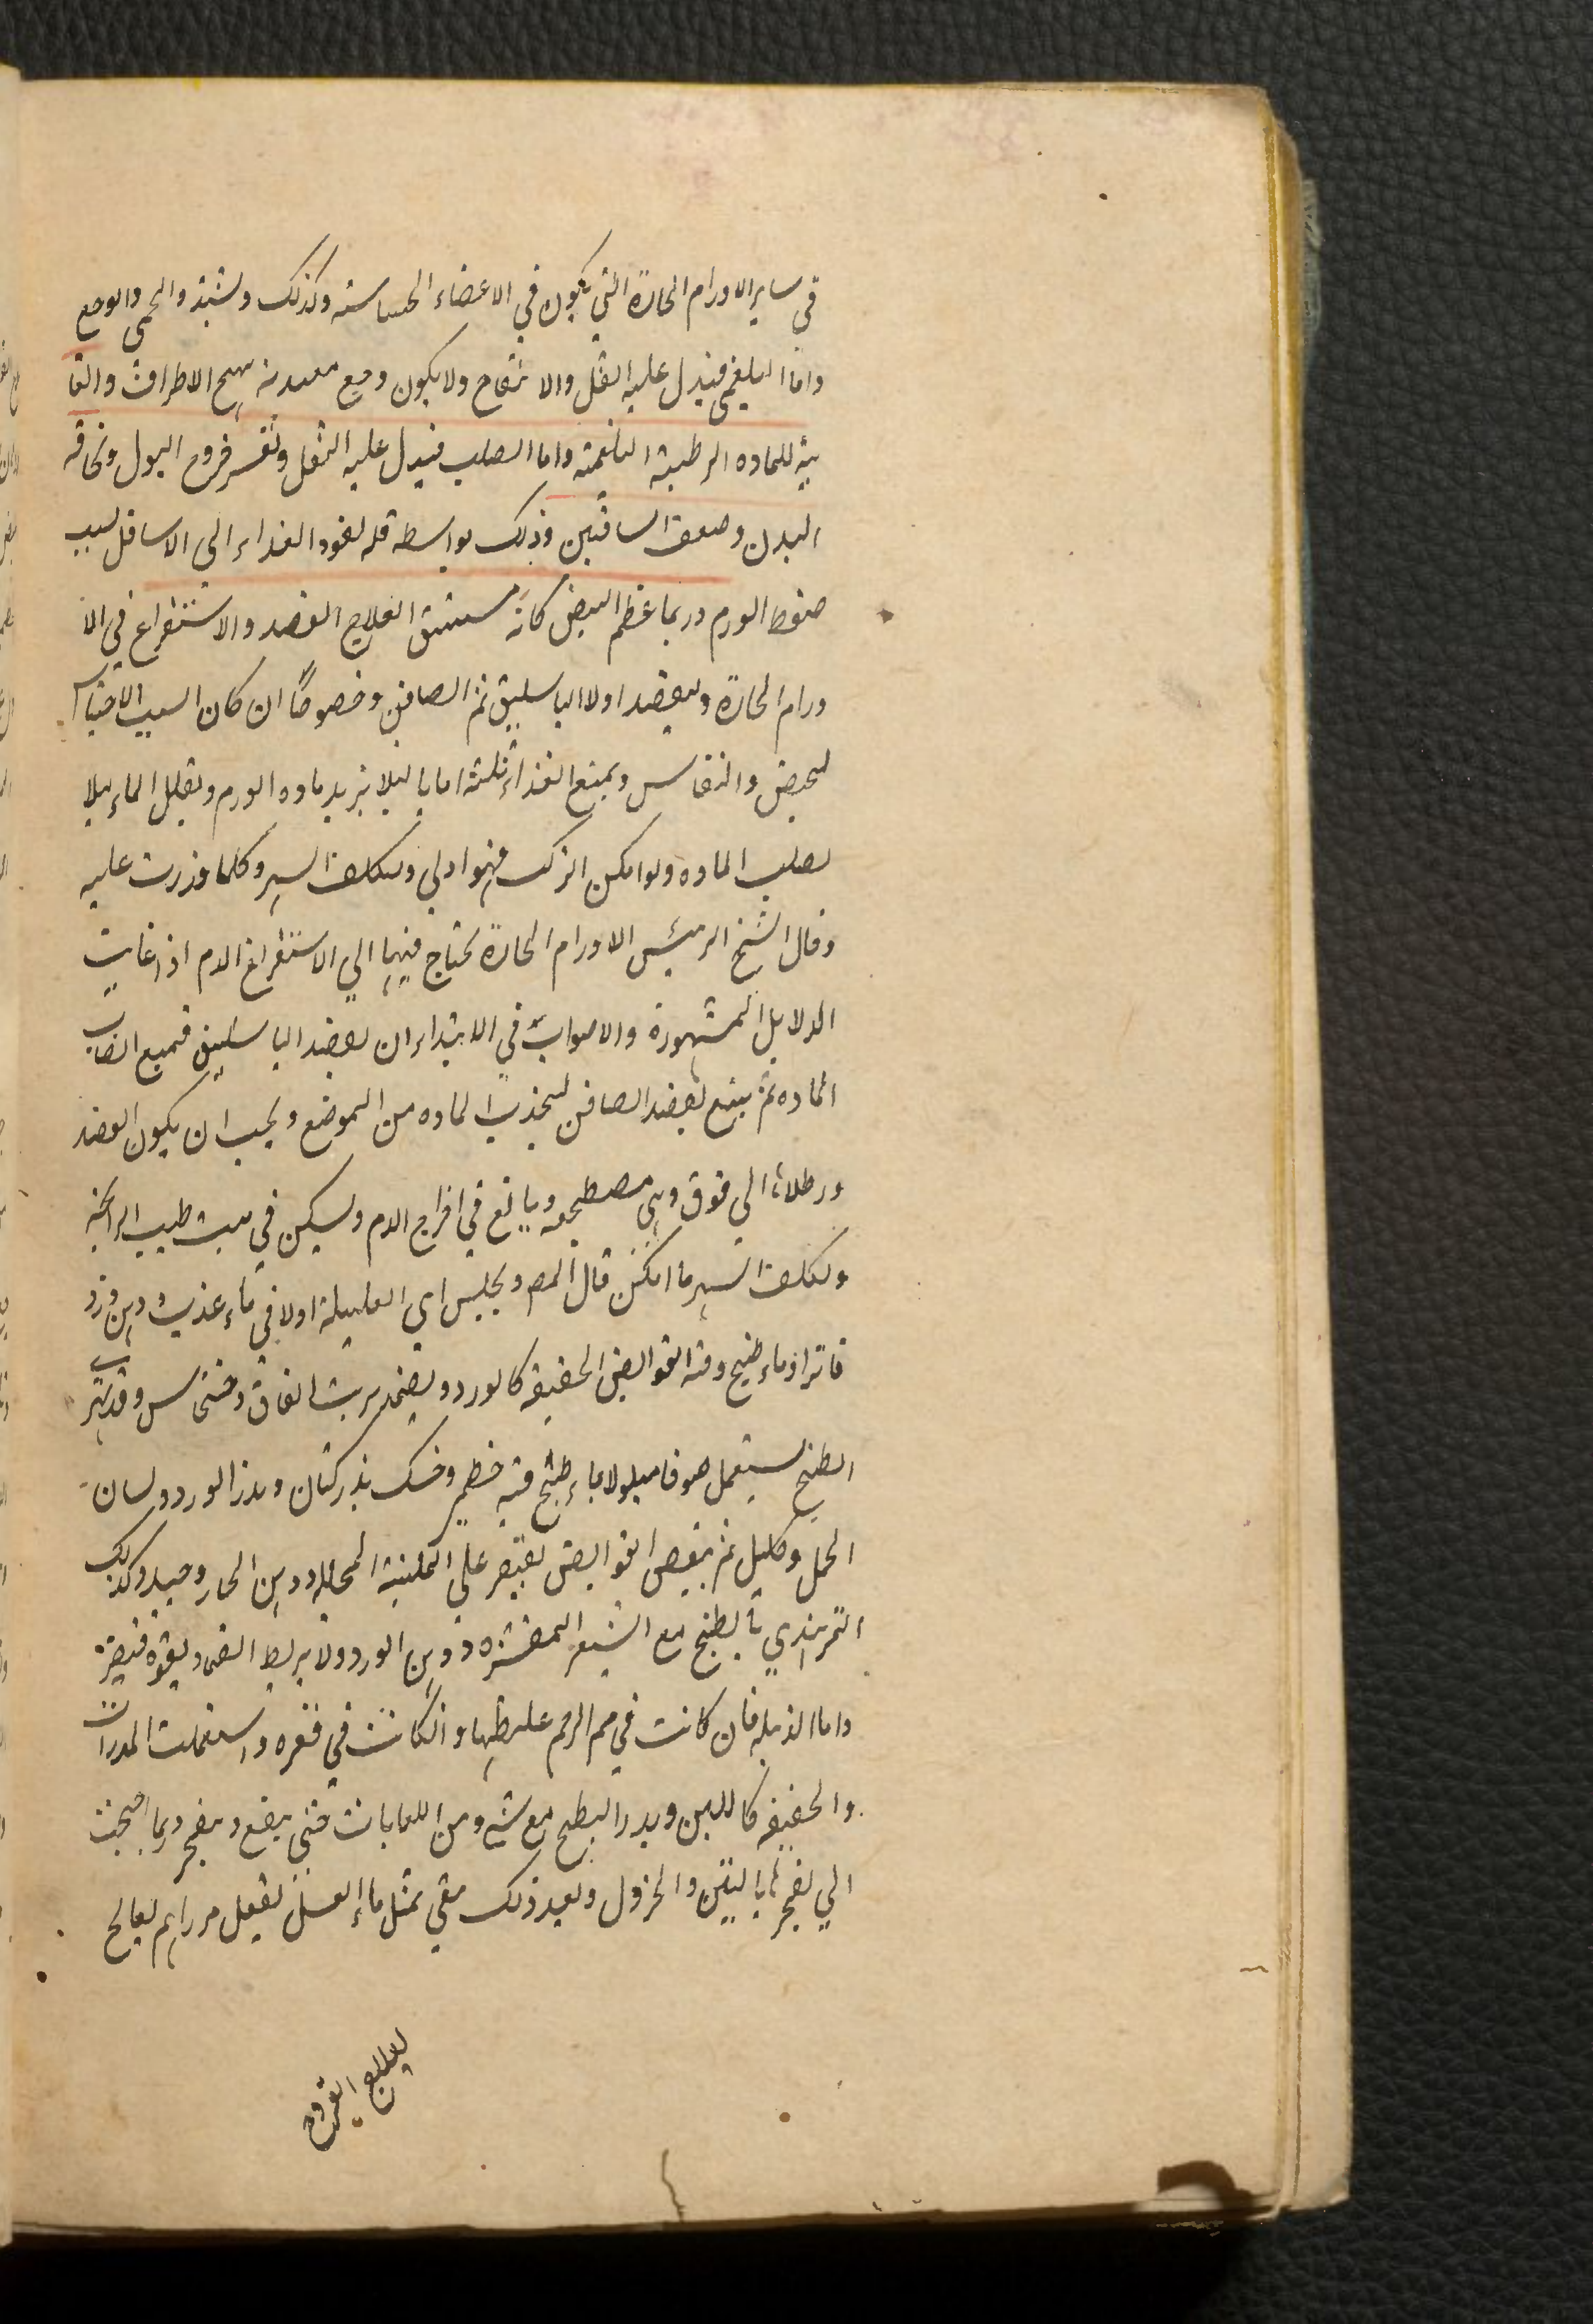 في ساير الاورام الحارة التي يكون في الاعضاء الحساسة وكذلك ولشتد والحمى والوجع
واما البلغمى فيدل عليه الثقل والانتفاخ ولا يكون وجع معه تهيج الاطراف والعا
نية للماده الرطبة البلغمية واما الصلب فيدل عليه الثقل وتعسر خروج البول ونحافه
البدن وضعف الساقين وذلك بواسطه قله نفوذ الغذاء الى الاسافل لسبب
ضغط الورم وربما عظم البيض كانه مستسق العلاج الفصد والاستفراغ في الا
ورام الحارة وليفصد اولا الباسليق ثم الصافن وخصوصًا ان كان السبب الاحتباس
لحيض والنفاس ويمنع الغذاء ثلثة اياما ليلا يزيد ماده الورم وتقلل الماء ليلا
يصلب الماده ولو امكن الترك فهو اولى وتكلف السهر وكلما قدرت عليه
وقال الشيخ الرئيس الاورام الحارة يحتاج فيها الي الاستفراغ الدم اذ اعانت
الدلايل المشهورة والاصواب في الابتداء ان يفصد الباسليق فيمنع انصاب
الماده ثم يتبع بفصد الصافن ليجذب الماده من الموضع ويجب ان يكون الفصد
ورطلاء الي فوق وهي مصطجعه ويبالغ في اخراج الدم وليسكن في بيت طيب الرائحة
وتكلف السهر ما امكن قال المص ويجلس اي العليلة اولا في ماء عذب ودهن ورد
فاترا وماء طبيخ وفيه القوابض الخفيفة كالورد ويضمد بربت انفاق وخشخاس وقد يتر
الطبخ ليستعمل صوفا مبلولا بماء طبخ فيه خطم وخسك بذر كتان وبذر الورد ولسان
الحمل وكليل ثم ينقص القوابض يقتصر على الملينة المحلله ودهن الحار وحيد وكذلك
التمر هندي بالطبخ مع الشعير المقشره ودهن الورد ولا يربط الضماد بقوة فيضرة
واما الدبيلة فان كانت في فم الرحم وان كانت في قعره واستعملت المدرات
والخفيفه كاللبن وبذر البطيخ مع شيء من اللعابات حتى ينضج وينفجر وربما احتجت
الي تفجر بالتين والخردل وبعد ذلك ينقي بمثل ماء العسل لفعل مراهم يعالج
يعالج القروح